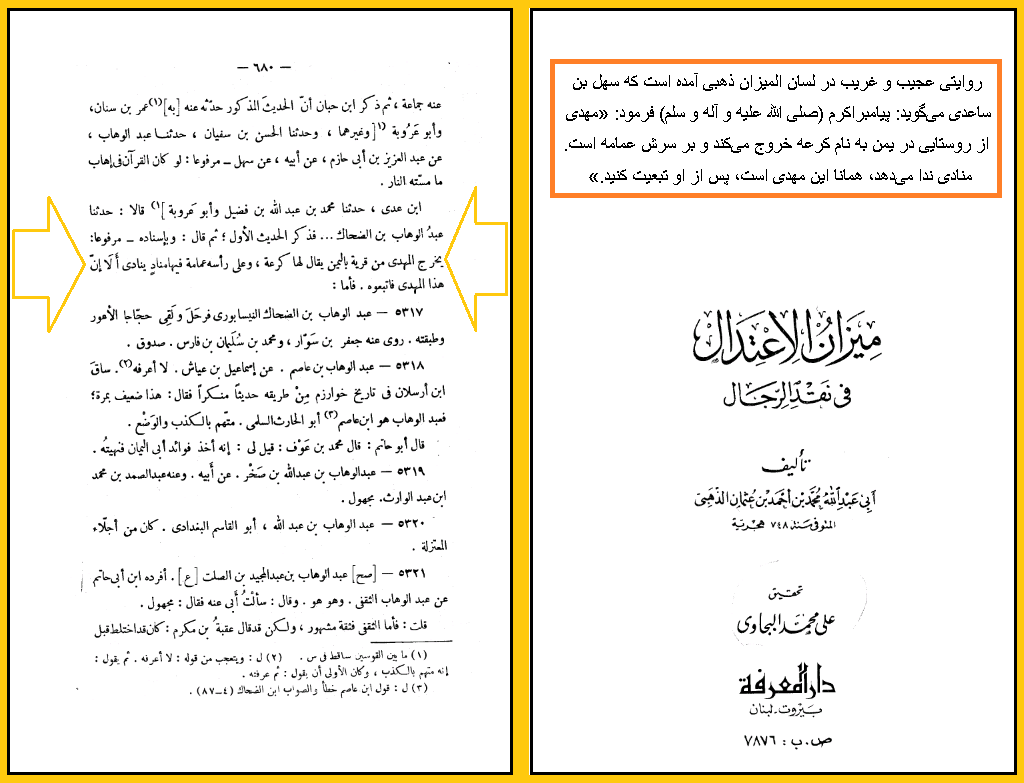 — ٦٨٠ —
عنه جماعة ، ثم ذكر ابن حبان أنّ الحديث المذكور حدّثه عنه [به](١) عمر بن سنان،
وأبو عَرُوبة (١[ وغيرهما ، وحدثنا الحسن بن سفيان ، حدثنا عبد الوهاب ،
عن عبد العزيز بن أبى حازم ، عن أبيه ، عن سهل ــ مرفوعا : لو كان القرآن فى إهاب
ما مسّته النار .
ابن عدى ، حدثنا محمد بن عبد الله بن فضيل وأبو عَروبة ](١ قالا : حدثنا
عبدُ الوهاب بن الضحاك ... فذكر الحديث الأول ؛ ثم قال : وبإسناده ــ مرفوعا:
يخرج المهدى من قرية باليمن يقال لها كرعة ، وعلى رأسه عمامة فيها منادٍ ينادى أَلا إنّ
هذا المهدى فاتبعوه . فأما :
٥٣١٧ — عبد الوهاب بن الضحاك النيسابورى فرحَلَ ولَقِى حجّاجا الأعور
وطبقته . روى عنه جعفر بن سَوّار ، ومحمد بن سُلَيمان بن فارس . صدوق .
٥٣١٨ — عبد الوهاب بن عاصم . عن إسماعيل بن عياش . لا أعرفه(٢). ساقَ
ابن أرسلان فى تاريخ خوارزم مِنْ طريقه حديثاً منكراً فقال : هذا ضعيف بمرة ؛
فعبد الوهاب هو ابن عاصم(٣) أبو الحارث السلمى . متّهم بالكذب والوَضْع .
قال أبو حاتم : قال محمد بن عَوْف : قيل لى : إنه أخذ فوائد أبى اليمان فنهيتُه .
٥٣١٩ — عبد الوهاب بن عبد الله بن صَخْر . عن أبيه . وعنه عبد الصمد بن محمد
ابن عبد الوارث. مجهول .
٥٣٢٠ — عبد الوهاب بن عبد الله ، أبو القاسم البغدادى . كان من أجلّاء
المعتزلة .
٥٣٢١ — [صح] عبد الوهاب بن عبد المجيد بن الصلت [ع] . أفرده ابن أبى حاتم
عن عبد الوهاب الثقفى . وهو هو . وقال : سألْتُ أَبى عنه فقال : مجهول .
قلت : فأما الثقفى فثقة مشهور ، ولكن قد قال عقبةُ بن مكرم : كان قد اختلط قبل
(١) ما بين القوسين ساقط فى س . (٢) ل : ويتعجب من قوله : لا أعرفه . ثم يقول :
إنه متهم بالكذب ، وكان الأولى أن يقول : ثم عرفته .
(٣) ل : قول ابن عاصم خطأ والصواب ابن الضحاك (٤-٨٧) .
روایتی عجیب و غریب در لسان المیزان ذهبی آمده است که سهل بن
ساعدی می‌گوید: پیامبراکرم (صلی الله علیه و آله و سلم) فرمود: «مهدی
از روستایی در یمن به نام کرعه خروج می‌کند و بر سرش عمامه است.
منادی ندا می‌دهد، همانا این مهدی است، پس از او تبعیت کنید.»
مِيزَانُ الاعْتِدَالِ
فى نَقْدِ الرِّجَالِ
تأليف
أبى عَبْدِ اللهِ مُحَمَّد بن أحمد بن عُثمان الذهبىّ
المتوفى سنة ٧٤٨ هجرية
تحقيق
على محمد البجاوى
دار المعرفة
بيروت ـ لبنان
ص . ب : ٧٨٧٦